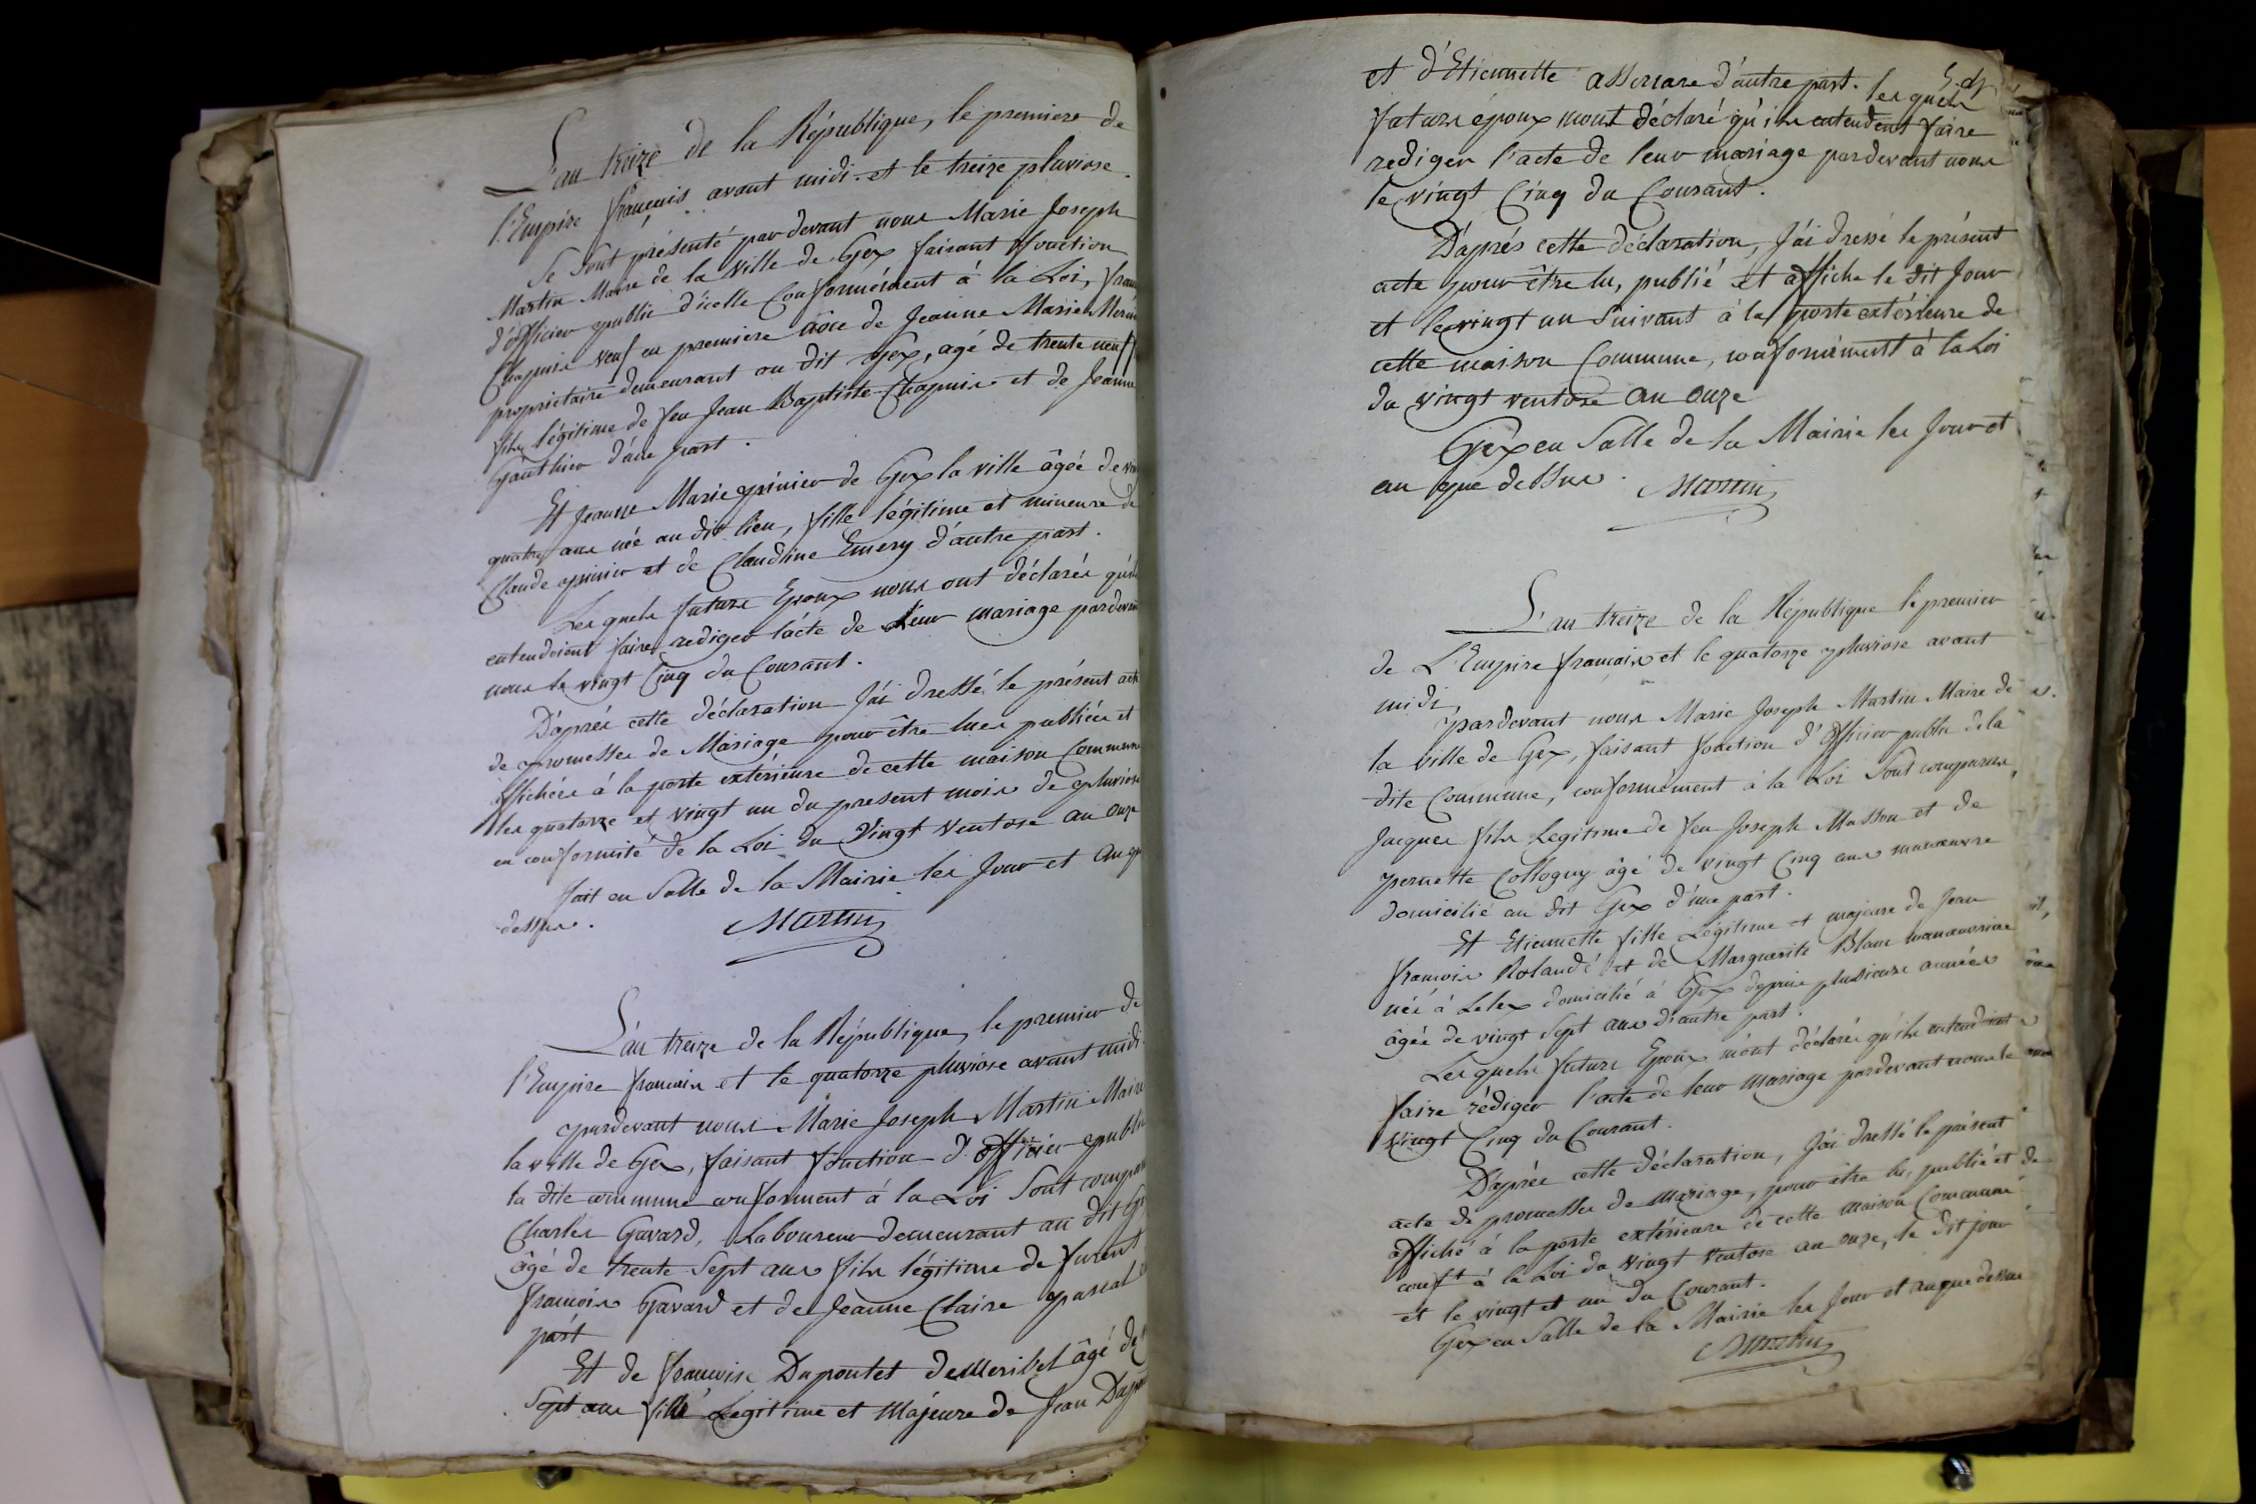 L'an treize de la République, le premiere de
l'Empire français avant midi. et le treize pluviose.
Se sont présenté par devant nous Marie Joseph
Martin Maire de la Ville de Gex faisant fonction
d'officier public d'icelle Conformément à la Loi,
Chapuis veuf en premiere nôce de Jeanne Marie
propriétaire demeurant au dit Gex, agé de trente neuf
fils légitime de feu Jean Baptiste Chapuis et de Jeanne
Gauthier d'une part.
Et Jeanne Marie grinier de Gex la ville âgée de
quatre ans née au dit lieu, fille légitime et mineure de
Claude grinier et de Claudine Emery d'autre part.
Les quels futurs Epoux nous ont déclarés qu'ils
entendoient faire rediger l'acte de leur mariage pardevant
nous le vingt Cinq du Courant.
D'après cette déclaration J'ai dressé le présent acte
de promesses de Mariage pour être lues publiées et
affichées à la porte extérieure de cette maison Commune
les quatorze et vingt un du present mois de pluviose
en conformité de la Loi du Vingt Ventose an onze
fait en Salle de la Mairie les Jour et an que
dessus.
Martin
L'an treize de la République, le premier de
l'Empire français et le quatorze pluviose avant midi.
pardevant nous Marie Joseph Martin Maire
la ville de Gex, faisant fonction d'officier public
la dite commune conforment à la Loi Sont
Charles Gavard, Laboureur demeurant au dit
âgé de trente Sept ans fils légitime de furent
françois Gavard et de Jeanne Claire pascal
part
Et de françoise Dupontet de âgé de
Sept ans fille Legitime et Majeure de Jean
et d'Etiennette d'autre part. les quels
futurs époux mont déclaré qu'ils entendent faire
rediger l'acte de leur mariage pardevant nous
le vingt Cinq du Courant.
D'après cette déclaration, J'ai dressé le présent
acte pour être lu, publié et affiche le dit Jour
et le vingt un Suivant à la porte extérieure de
cette maison Commune, conformément à la Loi
du vingt ventose an onze
Gex en Salle de la Mairie les Jour et
an que dessus.
Martin
L'an treize de la République le premier
de L'Empire français et le quatorze pluviose avant
midi
pardevant nous Marie Joseph Martin Maire de
la ville de Gex, faisant fonction d'officier public de la
dite Commune, conformément à la Loi Sont comparus,
Jacques fils Legitime de feu Joseph Masson et de
pernette Collogny âgé de vingt Cinq ans manœuvre
domicilié au dit Gex d'une part.
Et Etiennette fille Légitime et majeure de Jean
françois Rolandé et de Marguerite Blanc manœuvriere
née à Lelex domicilié à Gex depuis plusieurs années
âgée de vingt Sept ans d'autre part.
Les quels futurs Epoux m'ont déclarés qu'ils entendoient
faire rédiger l'acte de leur mariage pardevant nous le
vingt Cinq du Courant.
D'après cette déclaration, J'ai dressé le présent
acte de promesses de mariage, pour être lu, publié et
affiché à la porte extérieure de cette maison Commune
conft à la Loi du vingt Ventose an onze, le dit jour
et le vingt et un du Courant.
Gex en Salle de la Mairie les Jour et an que dessus
Martin